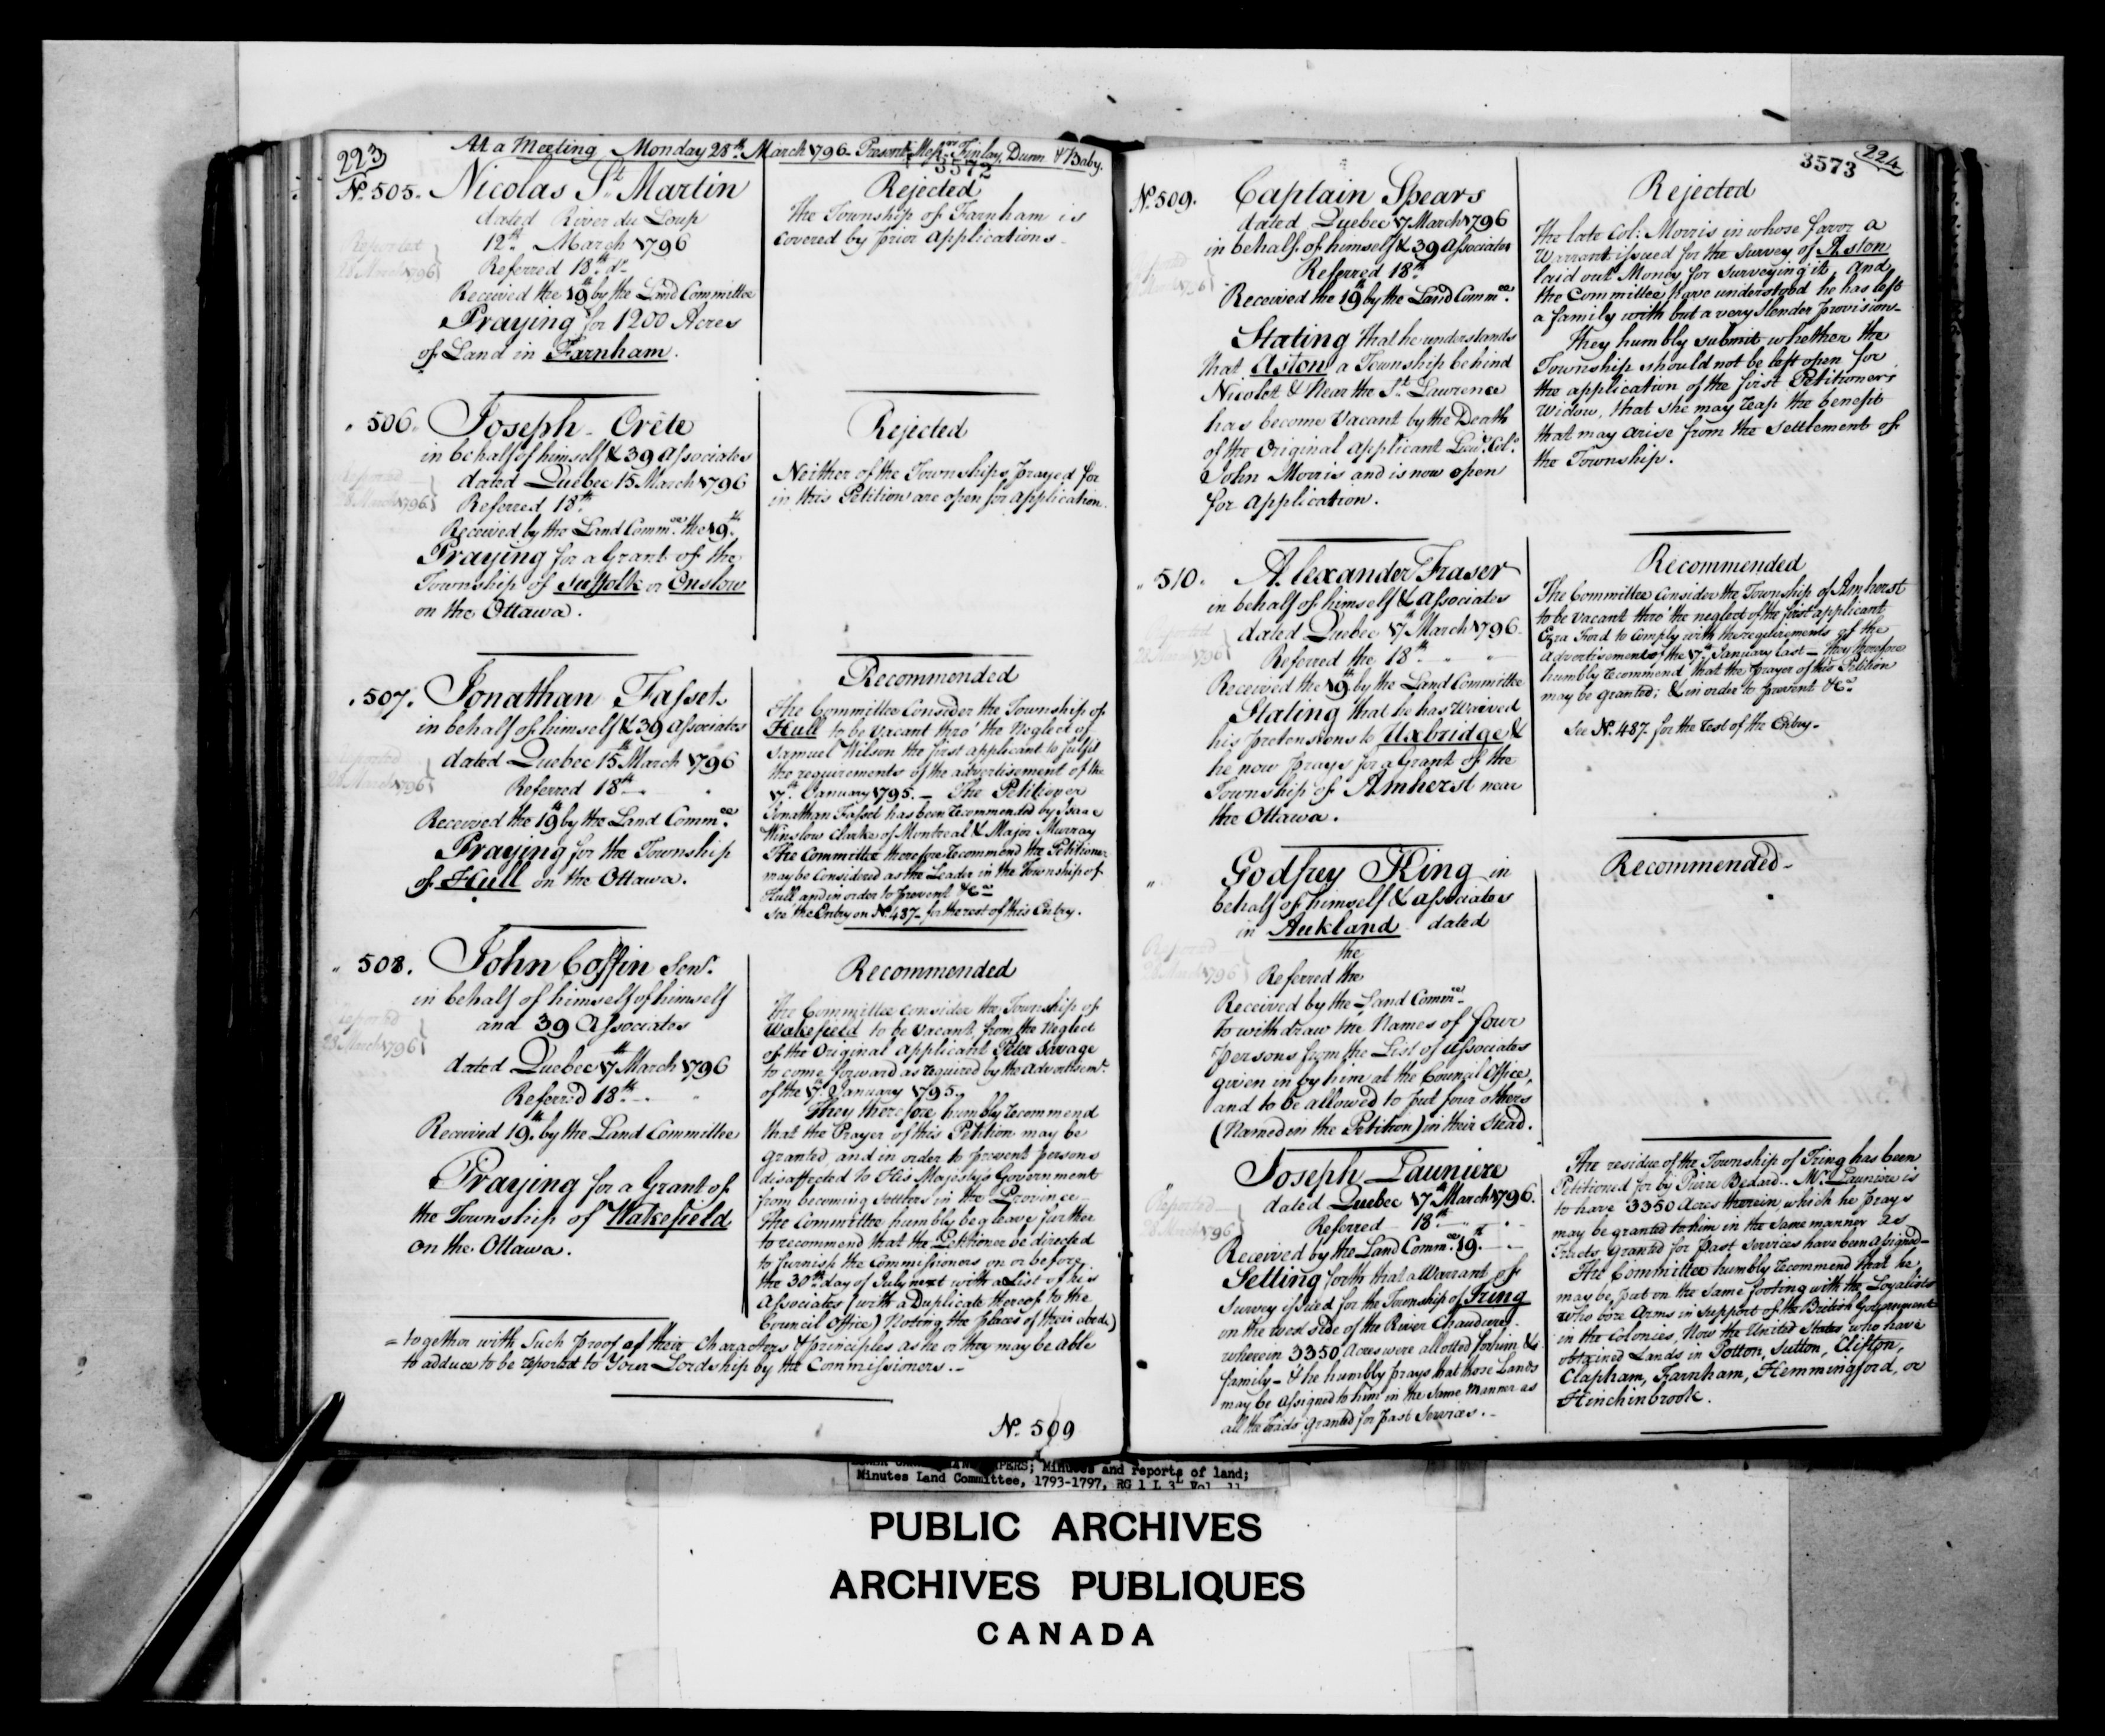 223
At a Meeting Monday 28th March 1796 - Present Messrs Finlay, Dunn & Baby.
3572
No. 505. Nicolas St. Martin
dated River du Loup
12th March 1796
Referred 18th do
Received the 19th by the Land Committee
Praying for 1200 Acres
of Land in Farnham.
Reported
28 March 1796
Rejected
The Township of Farnham is
covered by prior applications.
" 506. Joseph Crête
in behalf of himself & 39 Associates
dated Quebec 15 March 1796
Referred 18th
Received by the Land Commee. the 19th.
Praying for a Grant of the
Township of Suffolk or Onslow
on the Ottawa.
Reported
28 March 1796
Rejected
Neither of the Townships prayed for
in this Petition are open for application.
" 507. Jonathan Fasset
in behalf of himself & 39 Associates
dated Quebec 15th March 1796
Referred 18th
Received the 19th by the Land Commee.
Praying for the Township
of Hull on the Ottawa.
Reported
28 March 1796
Recommended
The Committee Consider the Township of
Hull to be vacant thro' the Neglect of
Samuel Wilson the first applicant to fulfil
the requirements of the advertisement of the
7th. January 1795. - The Petitioner
Jonathan Fasset has been recommended by Isaac
Winslow Clarke of Montreal & Major Murray
The Committee therefore recommend the Petitioner
may be Considered as the Leader in the Township of
Hull and in order to prevent &ca
See the Entry on No. 487 - for the rest of this Entry.
" 508. John Coffin Senr.
in behalf of himself of himself
and 39 Associates
dated Quebec 17th March 1796
Referred 18th
Received 19th. by the Land Committee
Praying for a Grant of
the Township of Wakefield
on the Ottawa.
Reported
28 March 1796
Recommended
The Committee consider the Township of
Wakefield to be vacant from the neglect
of the Original applicant Peter Savage
to come forward as required by the Advertisemt.
of the 7th. January 1795.
They therefore humbly recommend
that the Prayer of this Petition may be
granted and in order to prevent persons
disaffected to His Majesty's Government
from becoming settlers in the Province
The Committee humbly beg leave further
to recommend that the Petitioner be directed
to furnish the Commissioners on or before
the 30th day of July next with a List of his
Associates (with a Duplicate thereof to the
Council Office) Noting the places of their abode)
= together with Such proof of their Characters & principles as he or they may be able
to adduce to be reported to Your Lordship by the Commissioners. -
No. 509
224
3573
No. 509. Captain Spears
dated Quebec 17 March 1796
in behalf of himself & 39 Associates
Referred 18th
Received the 19th by the Land Commee.
Stating that he understands
that Aston a Township behind
Nicolet & Near the St. Lawrence
has become Vacant by the Death
of the Original applicant Leut. Col.
John Morris and is now open
for application.
Rejected
The late Col: Morris in whose favor a
Warrant issued for the Survey of Aston
laid out Money for Surveying it, and
the Committee have understood he has left
a family with but a very slender provision -
They humbly submit whether the
Township should not be left open for
the application of the first Petitioner's
Widow, that she may reap the benefit
that may arise from the Settlement of
the Township.
" 510. Alexander Fraser
in behalf of himself & Associates
dated Quebec 17th March 1796
Referred the 18th
Received the 19th by the Land Committee
Stating that he has Waived
his pretensions to Uxbridge &
he now prays for a Grant of the
Township of Amherst near
the Ottawa.
Reported
28 March 1796
Recommended
The Committee Consider the Township of Amherst
to be vacant thro' the neglect of the first applicant
Ezra Ford to Comply with the requirements of the
Advertisement of the 7th January last - They therefore
humbly recommend that the Prayer of this Petition
may be granted; & in order to prevent &ca
See No. 487 for the rest of the Entry -
" Godfrey King in
behalf of himself & Associates
in Aukland dated
the
Referred the
Received by the Land Commee
to withdraw the Names of four
persons from the List of Associates
given in by him at the Council Office,
and to be allowed to put four others
(Named in the Petition) in their stead.
Reported
28 March 1796
Recommended -
" Joseph Launiere
dated Quebec 17 March 1796.
Referred 18th
Received by the Land Commee. 19th.
Setting forth that a Warrant of
Survey issued for the Township of Tring
on the west side of the River Chaudiere
wherein 3350 Acres were allotted for him &
family - & he humbly prays that those Lands
may be assigned to him in the same manner as
all the tracts granted for past Services. -
Reported
28 March 1796
The residue of the Township of Tring has been
Petitioned for by Pierre Bedard.. Mr. Launiere is
to have 3350 Acres therein which he prays
may be granted to him in the same manner as
Tracts granted for past services have been assigned -
The Committee humbly recommend that he
may be put on the same footing with the Loyalists
who bore Arms in support of the British Government
in the Colonies, Now the United States who have
obtained Lands in Potton, Sutton, Clifton,
Clapham, Farnham, Hemmingford, or
Hinchinbrook.
PAPERS; Minutes and reports of land;
Minutes Land Committee, 1793-1797, RG 1 L 3L Vol. 11
PUBLIC ARCHIVES
ARCHIVES PUBLIQUES
CANADA